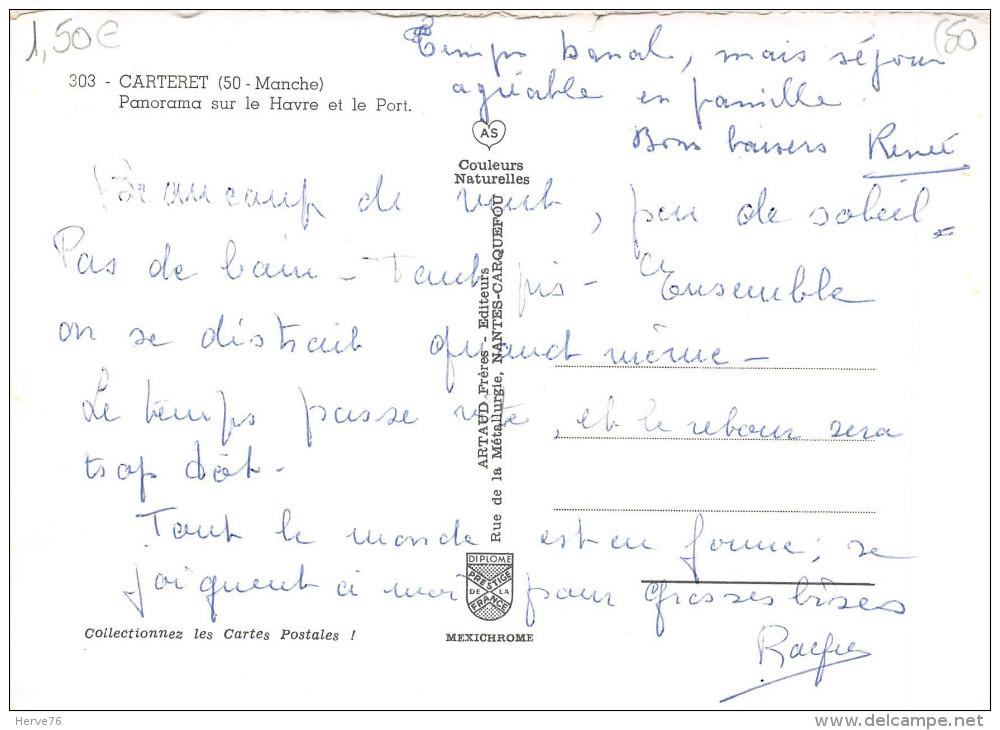 1,50€
(50
Temps banal, mais séjour
303 - CARTERET (50 - Manche)
Panorama sur le Havre et le Port.
agréable en famille
Bons baisers Renée
AS
Couleurs
Naturelles
Beaucoup de vent, peu de soleil.
Pas de bain - Tant pis - Ensemble
on se distrait quand même -
Le temps passe vite, et le retour sera
trop tôt -
Tout le monde est en forme ; se
joignent à moi pour grosses bises
ARTAUD Frères - Editeurs
Rue de la Métallurgie, NANTES-CARQUEFOU
DIPLOME
PRESTIGE
DE LA
FRANCE
Collectionnez les Cartes Postales !
MEXICHROME
Herve76
delcampe.net